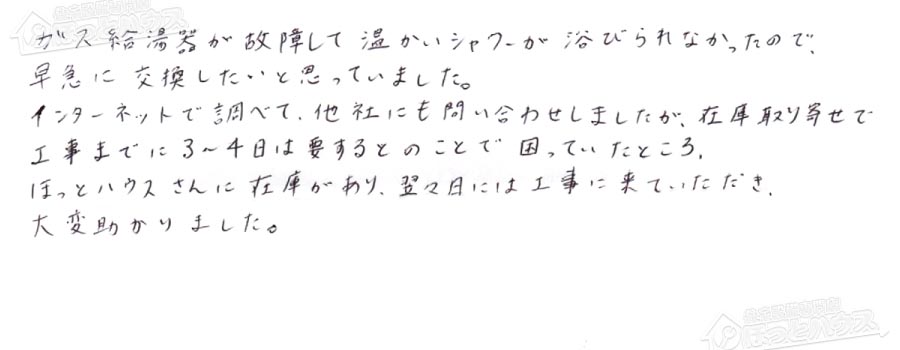 ガス給湯器が故障して温かいシャワーが浴びられなかったので、
早急に交換したいと思っていました。
インターネットで調べて、他社にも問い合わせしましたが、在庫取り寄せで
工事までに3〜4日は要するとのことで困っていたところ、
ほっとハウスさんに在庫があり、翌々日には工事に来ていただき、
大変助かりました。
ほっとハウス